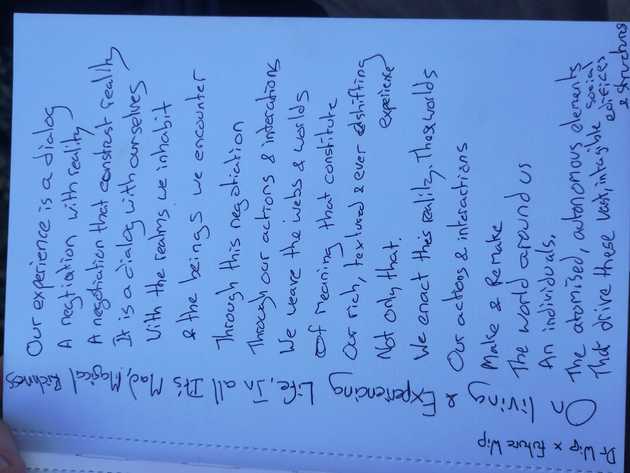 On living & Experiencing Life, in all It's Mad, Magical Richness
Pt Wip x future Wip
Our experience is a dialog
A negtiation with reality
A negotiation that construst reality
It is a dialog with ourselves
With the realms we inhabit
& the beings we encounter
Through this negotiation
Through our actions & interactions
We weave the webs & worlds
Of meaning that constitute
Our rich, textured & ever shifting experience
Not only that.
We enact this reality. These worlds
Our actions & interactions
Make & Remake
The world around us
An individuals.
The atomised, autonomous elements
That drive these vast, intagible social edifices & structures